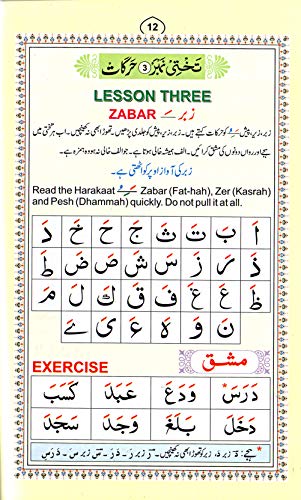 12
تختی نمبر 3 حرکات
LESSON THREE
ZABAR زبر
زبر، زیر، پیش کو حرکات کہتے ہیں۔ زبر، زیر، پیش کو جلدی پڑھیں۔ تھوڑا بھی نہ کھینچیں۔ اب ہر تختی میں
ہجے اور رواں دونوں کی مشق کرائیں۔ الف ہمیشہ خالی ہوتا ہے۔ جو الف خالی نہ ہو وہ ہمزہ ہے۔
زبر کی آواز اوپر کو اٹھتی ہے۔
Read the Harakaat Zabar (Fat-hah), Zer (Kasrah)
and Pesh (Dhammah) quickly. Do not pull it at all.
اَ بَ تَ ثَ جَ حَ خَ دَ
ذَ رَ زَ سَ شَ صَ ضَ طَ
ظَ عَ غَ فَ قَ كَ لَ مَ
نَ وَ هَ ءَ یَ ےَ
EXERCISE مشق
دَرَسَ وَدَعَ عَبَدَ كَسَبَ
دَخَلَ بَلَغَ وَجَدَ سَجَدَ